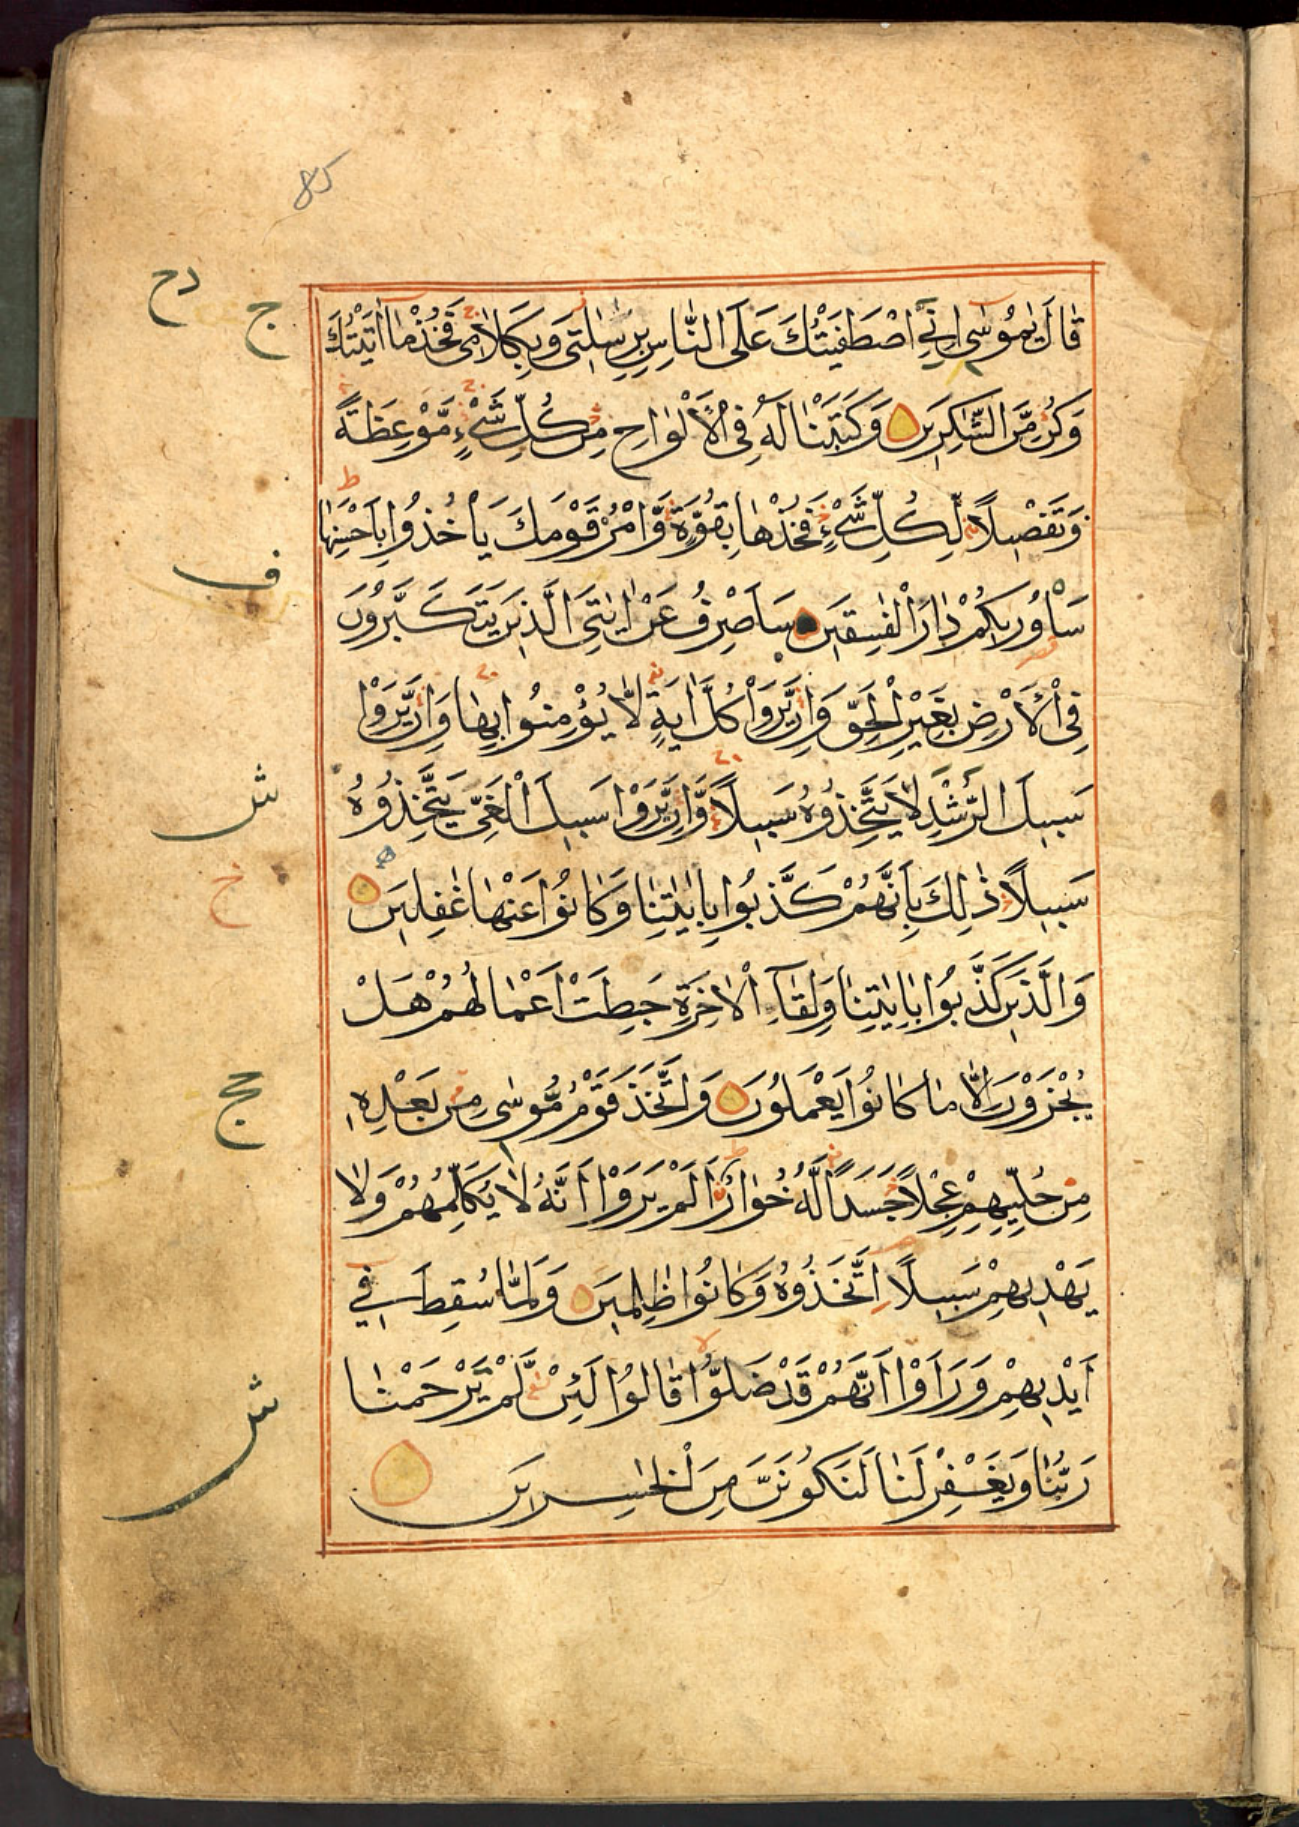 85
دح
ج
قَالَ يٰمُوْسٰى اِنِّى اصْطَفَيْتُكَ عَلَى النَّاسِ بِرِسٰلٰتِىْ وَبِكَلَامِىْ فَخُذْ مَا اٰتَيْتُكَ
وَكُنْ مِّنَ الشّٰكِرِيْنَ وَكَتَبْنَا لَهٗ فِى الْاَلْوَاحِ مِنْ كُلِّ شَىْءٍ مَّوْعِظَةً
وَتَفْصِيْلًا لِّكُلِّ شَىْءٍ فَخُذْهَا بِقُوَّةٍ وَّاْمُرْ قَوْمَكَ يَاْخُذُوْا بِاَحْسَنِهَا
ف
سَاُورِيْكُمْ دَارَ الْفٰسِقِيْنَ سَاَصْرِفُ عَنْ اٰيٰتِىَ الَّذِيْنَ يَتَكَبَّرُوْنَ
فِى الْاَرْضِ بِغَيْرِ الْحَقِّ وَاِنْ يَّرَوْا كُلَّ اٰيَةٍ لَّا يُؤْمِنُوْا بِهَا وَاِنْ يَّرَوْا
ش
سَبِيْلَ الرُّشْدِ لَا يَتَّخِذُوْهُ سَبِيْلًا وَّاِنْ يَّرَوْا سَبِيْلَ الْغَىِّ يَتَّخِذُوْهُ
خ
سَبِيْلًا ذٰلِكَ بِاَنَّهُمْ كَذَّبُوْا بِاٰيٰتِنَا وَكَانُوْا عَنْهَا غٰفِلِيْنَ
وَالَّذِيْنَ كَذَّبُوْا بِاٰيٰتِنَا وَلِقَآءِ الْاٰخِرَةِ حَبِطَتْ اَعْمَالُهُمْ هَلْ
يُجْزَوْنَ اِلَّا مَا كَانُوْا يَعْمَلُوْنَ وَاتَّخَذَ قَوْمُ مُوْسٰى مِنْ بَعْدِهٖ
مِنْ حُلِيِّهِمْ عِجْلًا جَسَدًا لَّهٗ خُوَارٌ اَلَمْ يَرَوْا اَنَّهٗ لَا يُكَلِّمُهُمْ وَلَا
يَهْدِيْهِمْ سَبِيْلًا اِتَّخَذُوْهُ وَكَانُوْا ظٰلِمِيْنَ وَلَمَّا سُقِطَ فِىْ
اَيْدِيْهِمْ وَرَاَوْا اَنَّهُمْ قَدْ ضَلُّوْا قَالُوْا لَئِنْ لَّمْ يَرْحَمْنَا
رَبُّنَا وَيَغْفِرْ لَنَا لَنَكُوْنَنَّ مِنَ الْخٰسِرِيْنَ